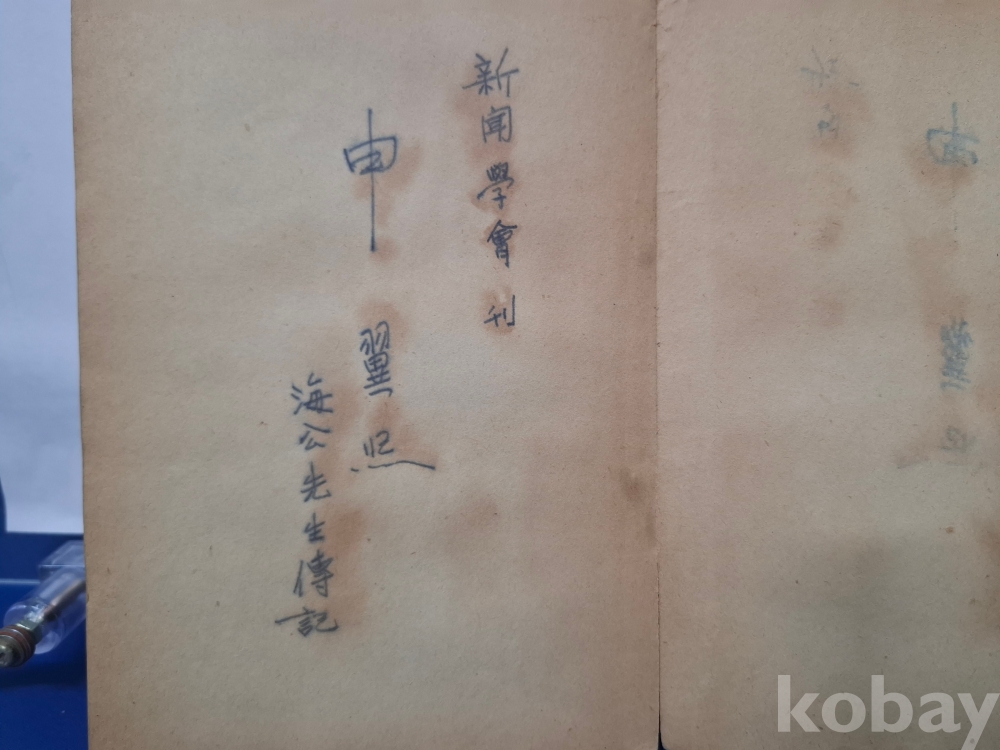 新聞學會刊
申翼熙
海公先生傳記
kobay